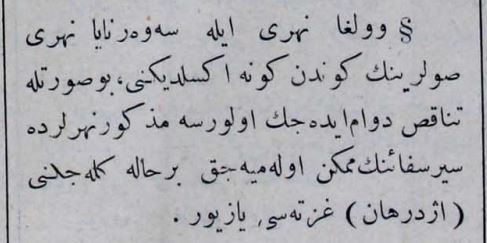 § وولغا نهری ایله سه‌وه‌رنایا نهری
صولرینك كوندن كونه اكسلدیكنی، بوصورتله
تناقص دوام ایده‌جك اولورسه مذكورنهرلرده
سیرسفائنك ممكن اوله‌میه‌جق برحاله كله‌جكنی
(اژدرهان) غزته‌سی یازیور .